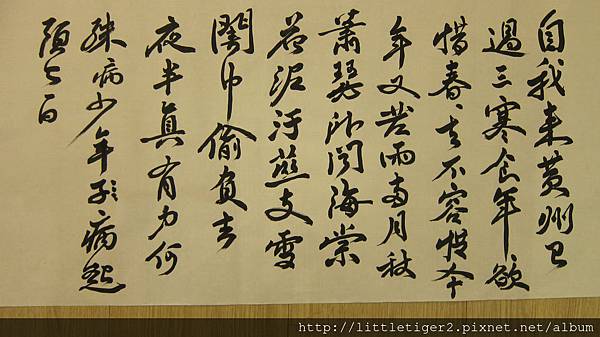 自我来黄州已
過三寒食年〻欲
惜春〻去不容惜今
年又苦雨兩月秋
蕭瑟卧聞海棠
花泥汙燕支雪
闇中偷負去
夜半真有力何
殊病少年子病起
頭已白
http://littletiger2.pixnet.net/album